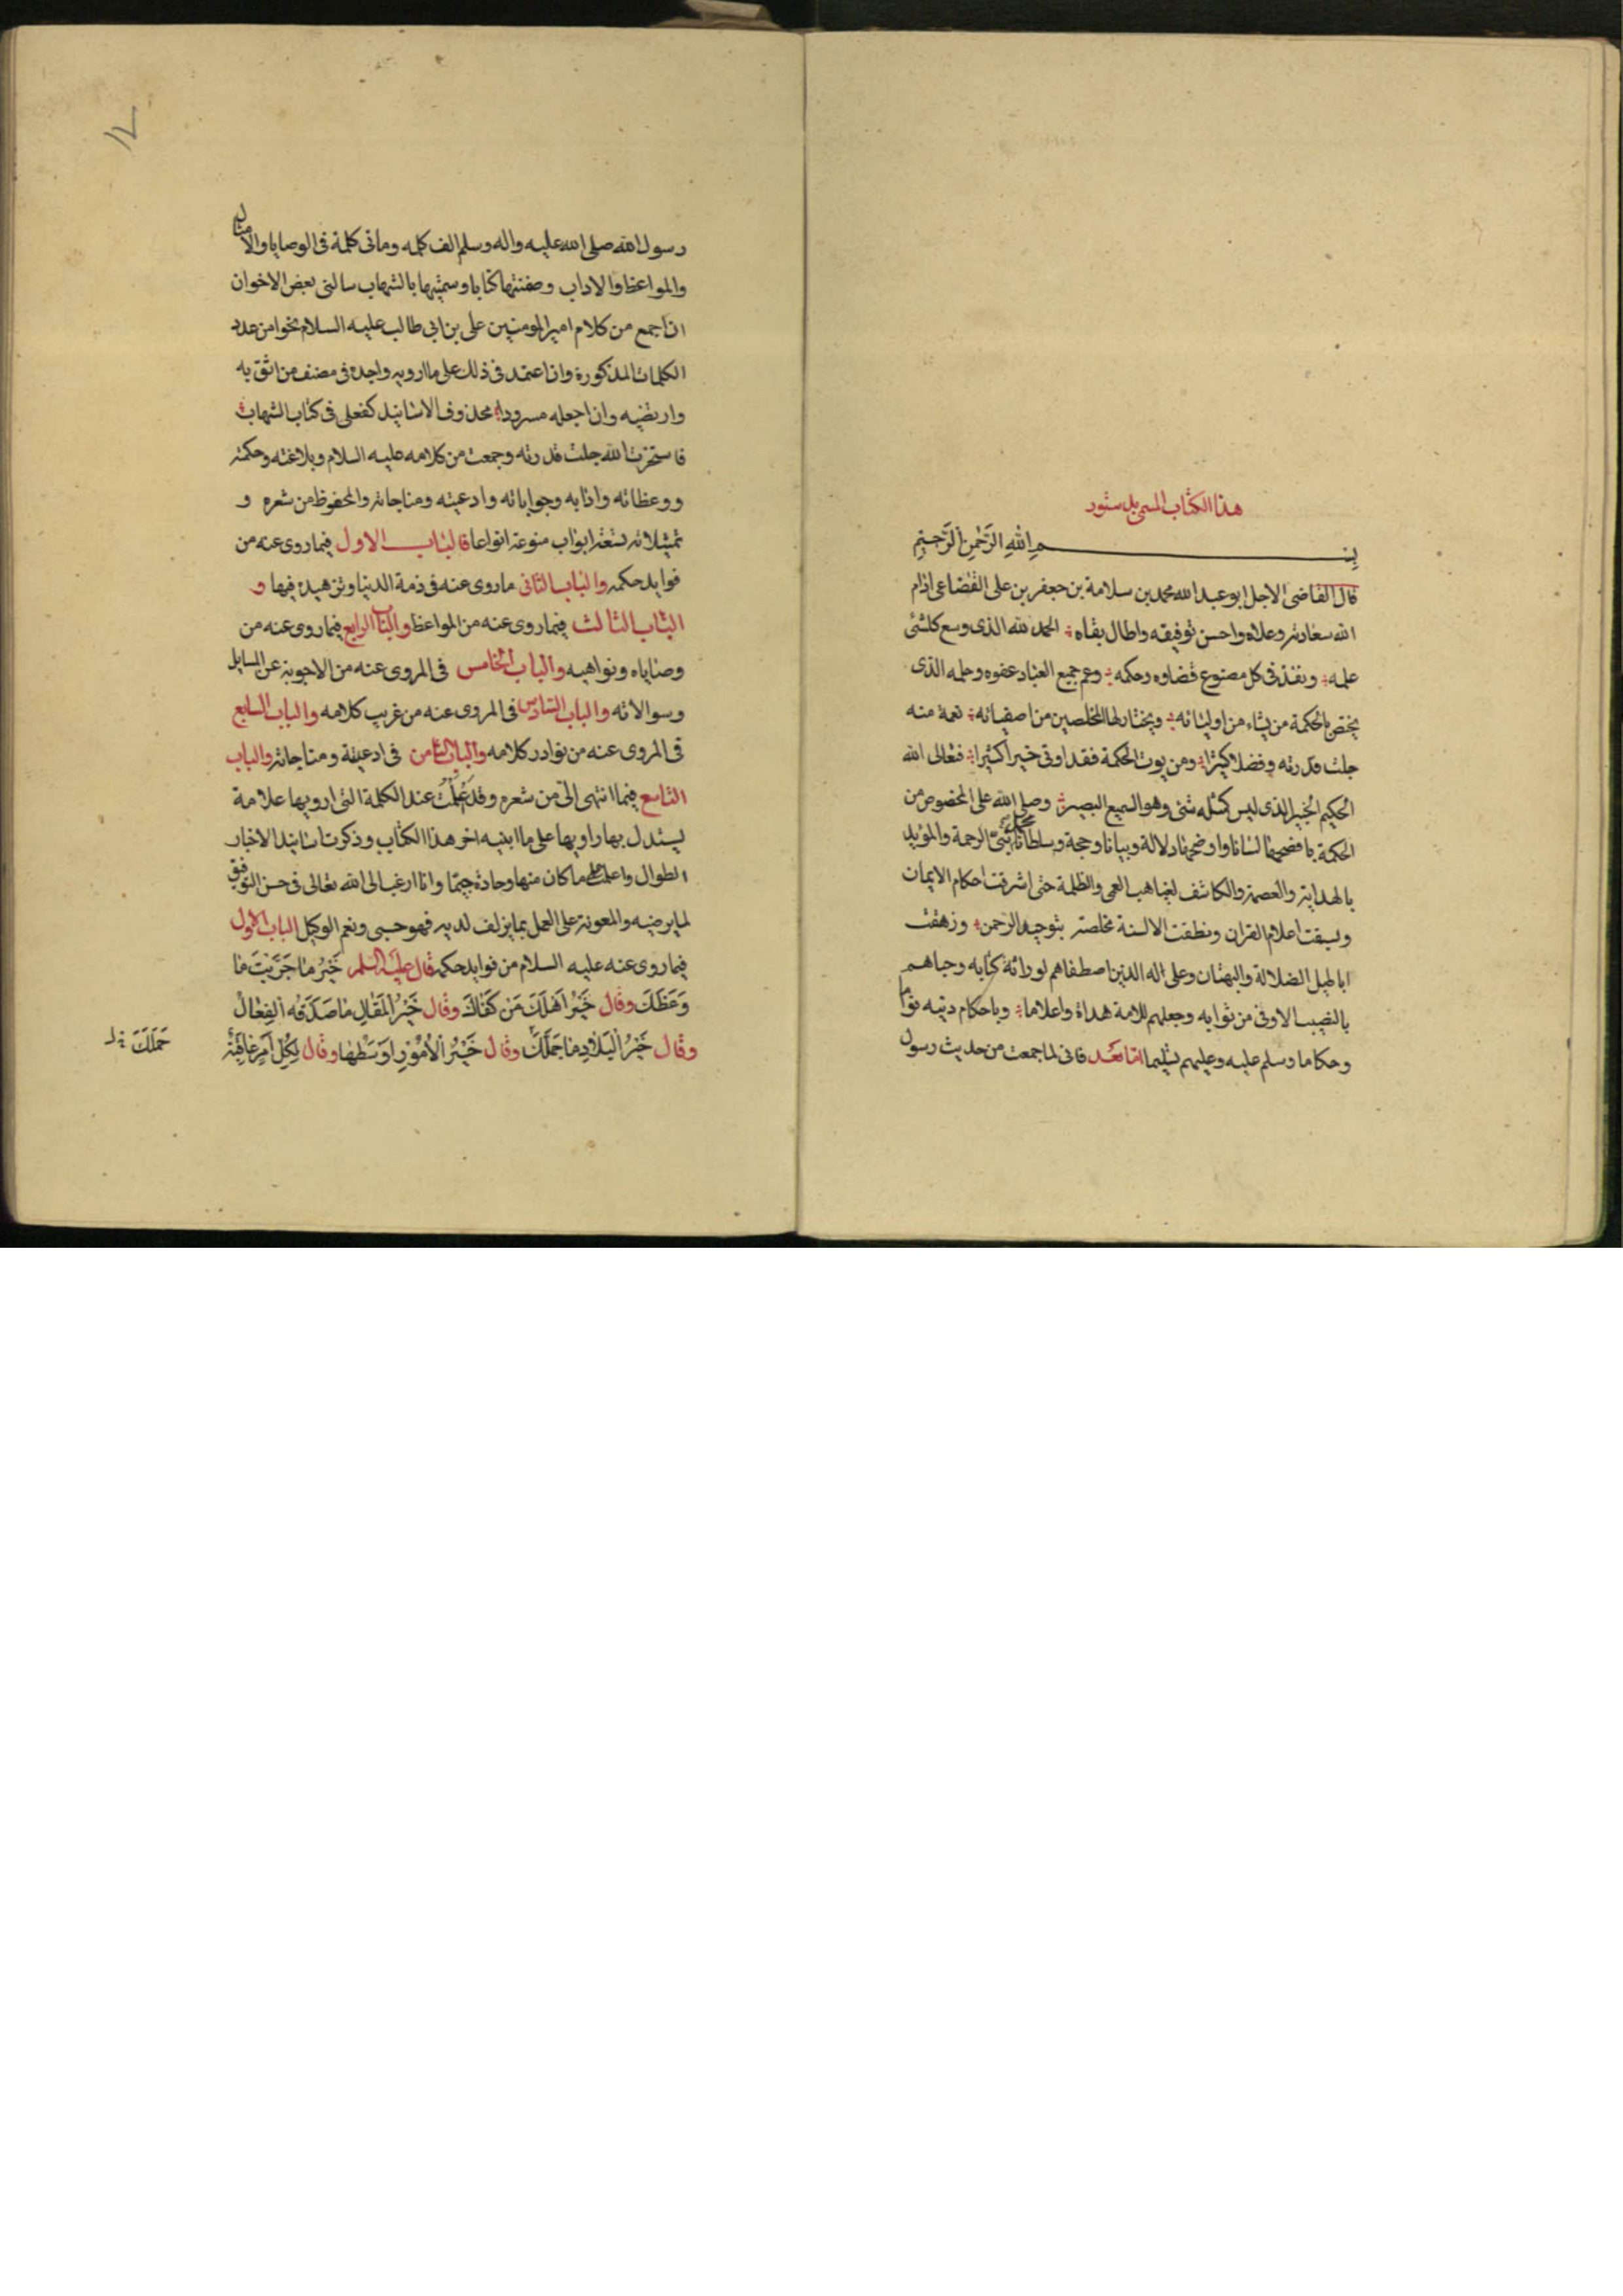 هذا الكتاب المسمى بدستور
بسم الله الرحمن الرحيم
قال القاضى الاجل ابو عبد الله محمد بن سلامة بن جعفر بن على القضاعى ادام
الله سعادته وعلاه واحسن توفيقه واطال بقاه الحمد لله الذى وسع كلشئ
علمه ونفذ فى كل مصنوع قضاوه وحكمه وعم جميع العباد عفوه وحلمه الذى
يختص بالحكمة من يشاء من اوليائه ويختار لها المخلصين من اصفيائه نعمة منه
جلت قدرته وفضلا كبيرا ومن يوت الحكمة فقد اوتى خيرا كثيرا فتعالى الله
الحكيم الخبير الذى ليس كمثله شئ وهو السميع البصير وصلى الله على المخصوص من
الحكمة بافصحها لسانا واوضحها دلالة وبيانا وحجة وسلطانا محمد نبى الرحمة والمؤيد
بالهداية والعصمة والكاشف لغياهب العمى والظلمة حتى اشرقت احكام الايمان
وبسقت اعلام القران ونطقت الالسنة مخلصة بتوحيد الرحمن وزهقت
اباطيل الضلالة والبهتان وعلى اله الذين اصطفاهم لوراثة كتابه وحباهم
بالنصيب الاوفى من ثوابه وجعلهم للامة هداة واعلاما وباحكام دينه قواما
وحكاما وسلم عليه وعليهم تسليما اما بعد فانى لما جمعت من حديث رسول
رسول الله صلى الله عليه واله وسلم الف كلمه ومائى كلمة فى الوصايا والامثال
والمواعظ والاداب وضمنتها كتابا وسميتها بالشهاب سالنى بعض الاخوان
ان اجمع من كلام امير المومنين على بن ابى طالب عليه السلام نحوا من عدد
الكلمات المذكورة وان اعتمد فى ذلك على ما ارويه واجده فى مصنف من اثق به
وارتضيه وان اجعله مسرودا محذوف الاسانيد كفعلى فى كتاب الشهاب
فاستخرت الله جلت قدرته وجمعت من كلامه عليه السلام وبلاغته وحكمته
ووعظاته وادابه وجواباته وادعيته ومناجاته والمحفوظ من شعره و
تمثيلاته تسعة ابواب منوعة انواعا فالباب الاول فيما روى عنه من
فوايد حكمه والباب الثانى ما روى عنه فى ذمة الدنيا وتزهيده فيها و
الباب الثالث فيما روى عنه من المواعظ والباب الرابع فيما روى عنه من
وصاياه ونواهيه والباب الخامس فى المروى عنه من الاجوبة عن المسايل
وسوالاته والباب السادس فى المروى عنه من غريب كلامه والباب السابع
فى المروى عنه من نوادر كلامه والباب الثامن فى ادعيته ومناجاته والباب
التاسع فيما انتهى الى من شعره وقد علمت عند الكلمة التى ارويها علامة
يستدل بها راويها على ما ابنيه اخر هذا الكتاب وذكرت اسانيد الاخبار
الطوال واعلمت على ما كان منها وجادة جيما وانا ارغب الى الله تعالى فى حسن التوفيق
لما يرضيه والمعونة على العمل بما يزلف لديه فهو حسبى ونعم الوكيل الباب الاول
فيما روى عنه عليه السلام من فوايد حكمه قال عليه السلم خَيْرُ ما جَرَّبْتَ ما
وَعَظَكَ وقال خَيْرُ اَهْلِكَ مَنْ كَفاكَ وقال خَيْرُ الْمَقالِ ما صَدَّقَه الفِعالُ
وقال خَيْرُ الْبِلادِ ما حَمَلَكَ وقال خَيْرُ الْاُمُورِ اَوْسَطُها وقال لِكُلِّ اَمرٍ عاقِبَةٌ
حَمَلَكَ